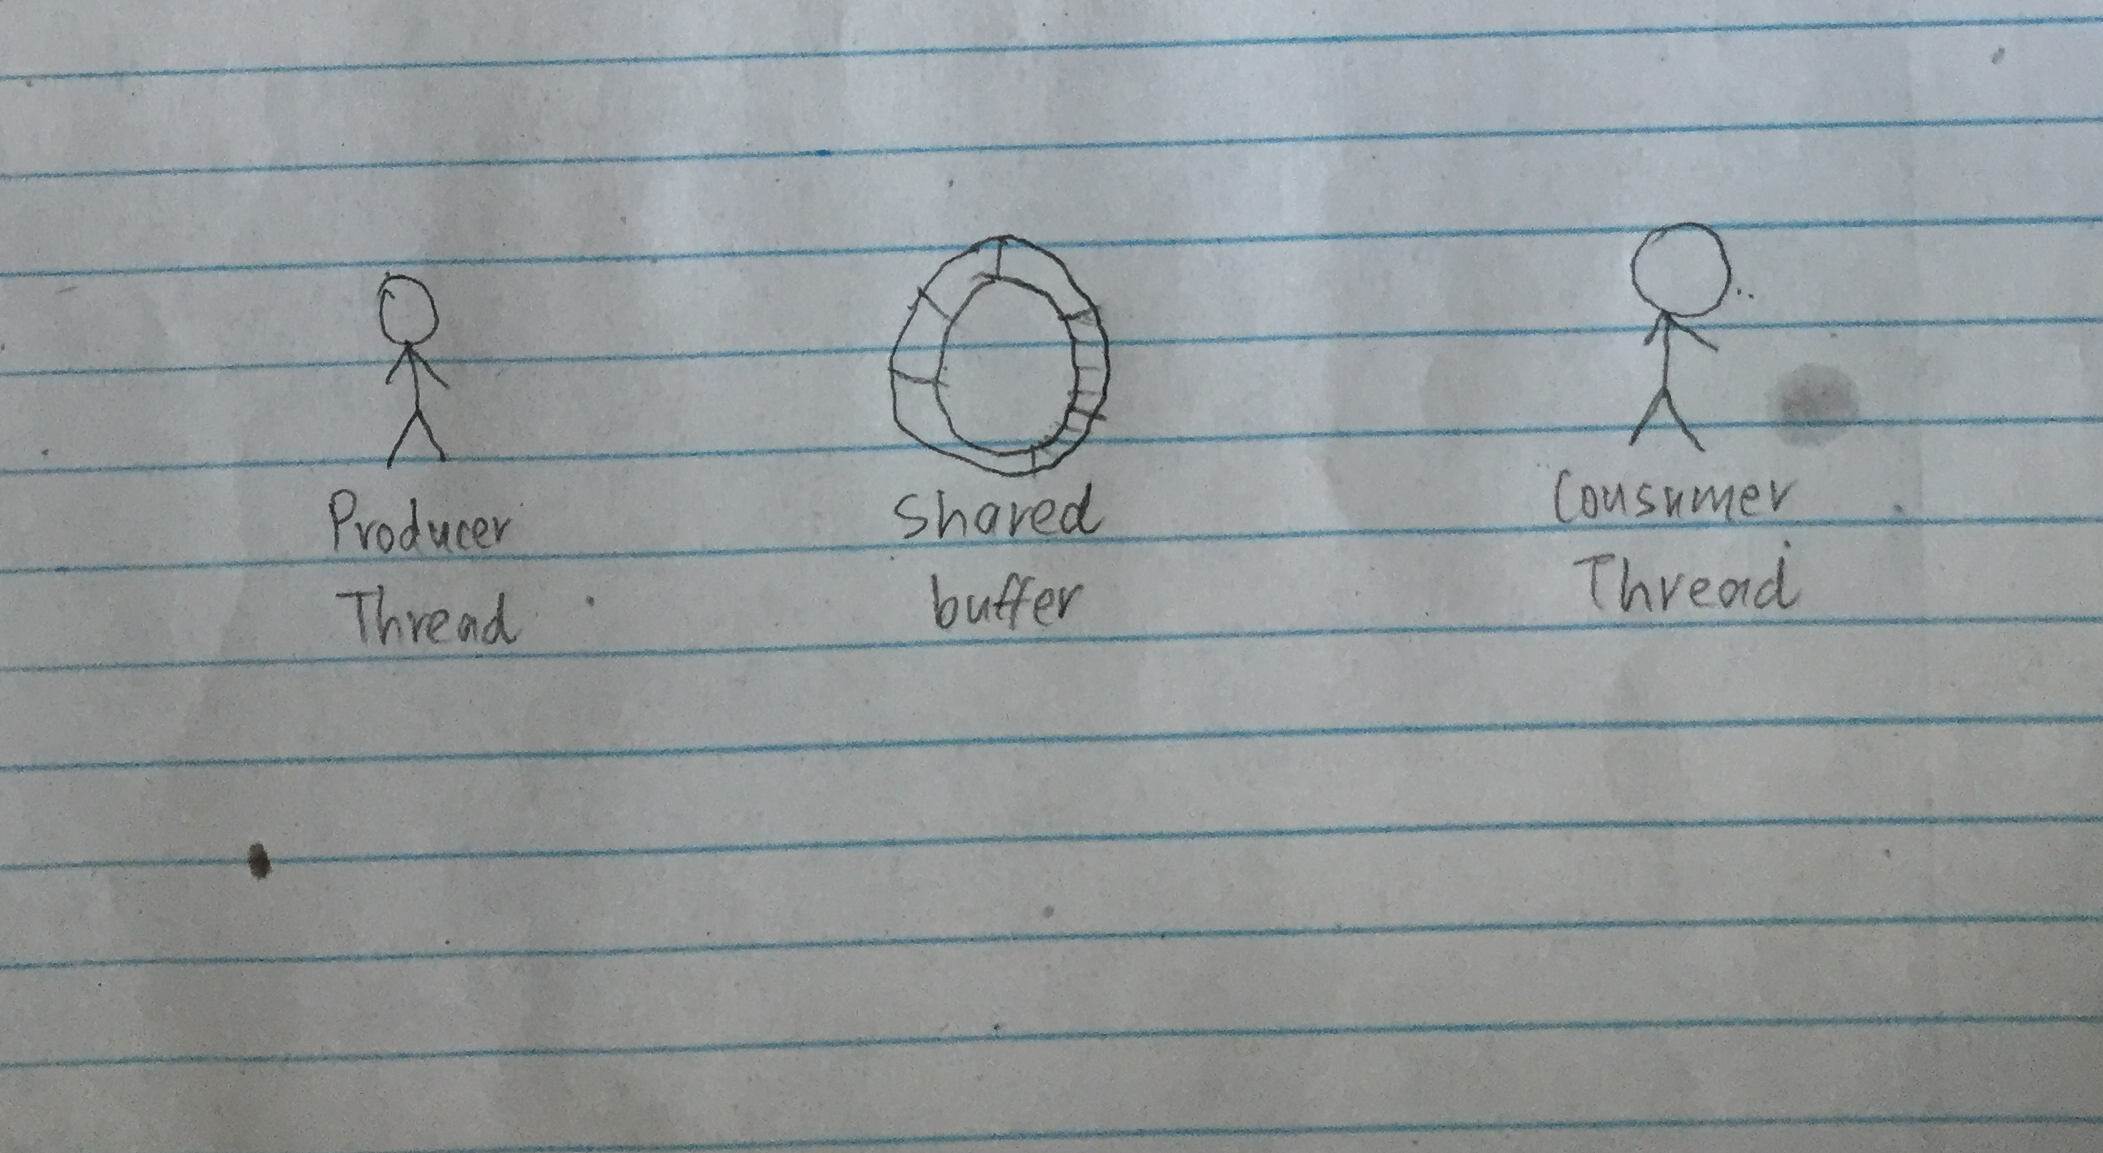 Producer
Thread
Shared
buffer
Consumer
Thread